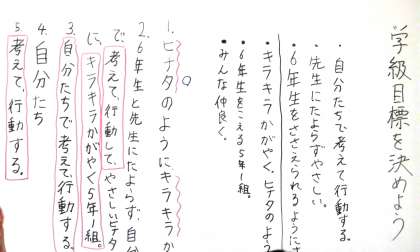 学級目標を決めよう
・自分たちで考えて、行動する。
・先生にたよらずやさしい。
・6年生をささえられるようにさ
・キラキラかがやく、ヒナタのよう
・6年生をこえる5年1組。
・みんな仲良く。
1.ヒナタのようにキラキラか
2.6年生と先生にたよらず、自分
で考えて、行動して、やさしいヒナタ
に、キラキラかがやく5年1組。
3.自分たちで考えて、行動する。
4.自分たち
5.考えて、行動する。